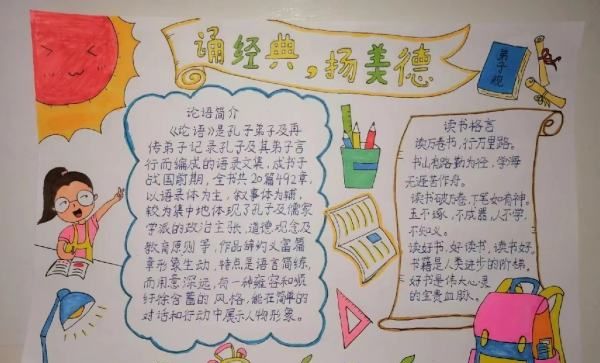 诵经典,扬美德
弟子规
论语简介
《论语》是孔子弟子及再
传弟子记录孔子及其弟子言
行而编成的语录文集,成书于
战国前期,全书共20篇492章,
以语录体为主,叙事体为辅,
较为集中地体现了孔子及儒家
学派的政治主张,道德观念及
教育原则等,作品
章形象生动,特点是语言简练,
而用意深远,有一种雍容和顺
纡徐含蓄的风格,能在简单的
对话和行动中展示人物形象。
读书格言
读万卷书,行万里路。
书山有路勤为径,学海
无涯苦作舟。
读书破万卷,下笔如有神。
玉不琢,不成器,人不学,
不知义。
读好书,好读书,读书好。
书籍是人类进步的阶梯。
好书是伟大心灵
的宝贵血脉。